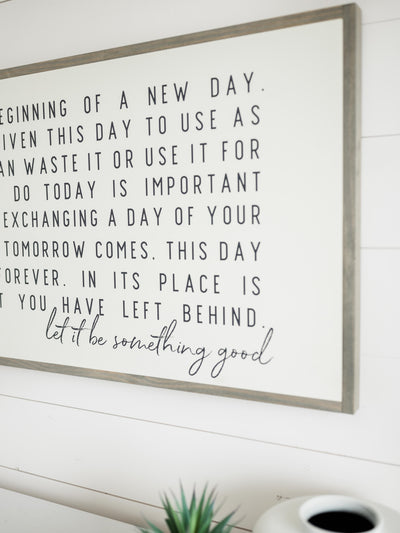 EGINNING OF A NEW DAY.
IVEN THIS DAY TO USE AS
AN WASTE IT OR USE IT FOR
DO TODAY IS IMPORTANT
EXCHANGING A DAY OF YOUR
TOMORROW COMES. THIS DAY
FOREVER. IN ITS PLACE IS
T YOU HAVE LEFT BEHIND.
let it be something good